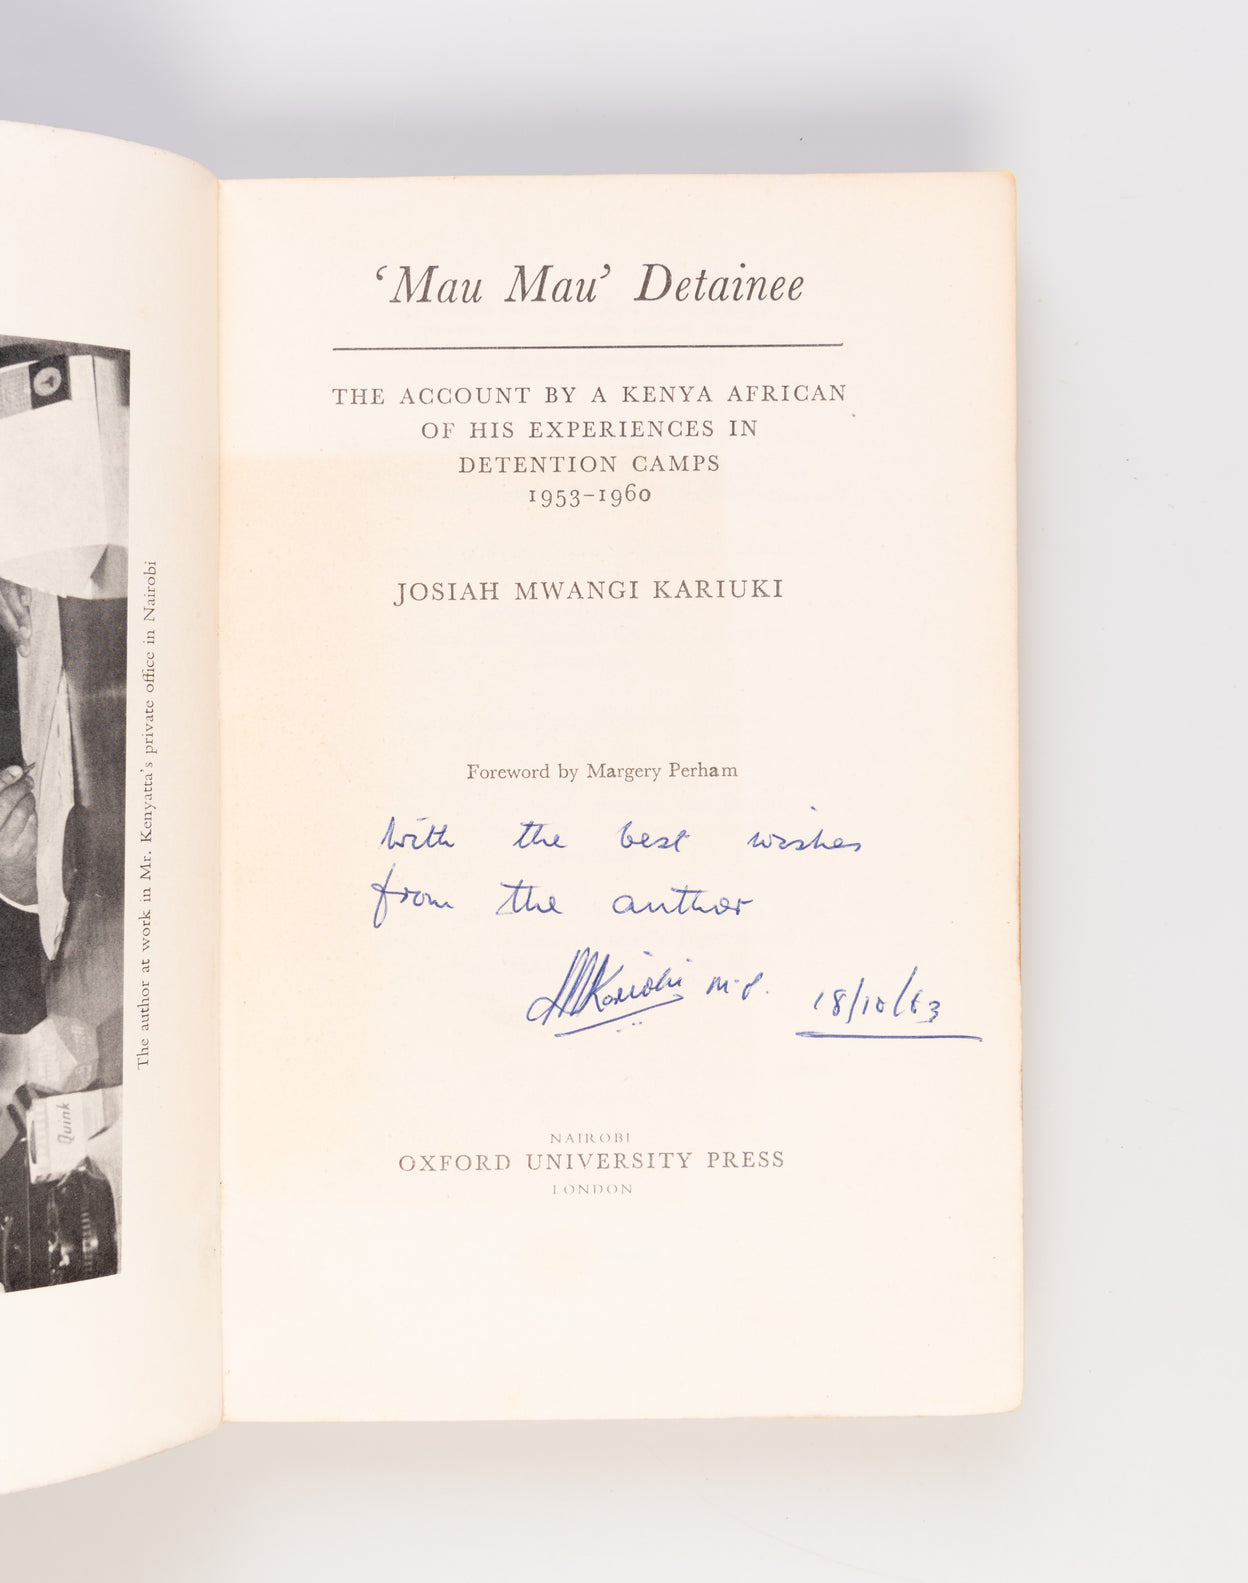 The author at work in Mr. Kenyatta's private office in Nairobi
Quink
‘Mau Mau’ Detainee
THE ACCOUNT BY A KENYA AFRICAN
OF HIS EXPERIENCES IN
DETENTION CAMPS
1953–1960
JOSIAH MWANGI KARIUKI
Foreword by Margery Perham
With the best wishes
from the author
JMKariuki M.P. 18/10/63
NAIROBI
OXFORD UNIVERSITY PRESS
LONDON